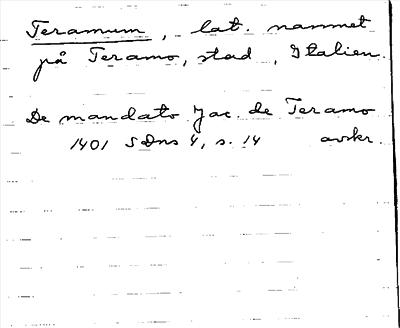 Teramum, lat. namnet
på Teramo, stad, Italien.
De mandato Jac. de Teramo
1401 SDns 4, s. 14 avskr.